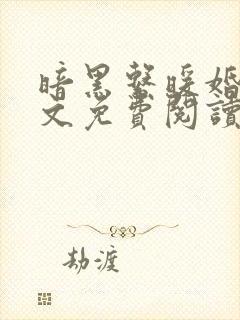 暗黑系暖婚
文免費閱讀
劫渡